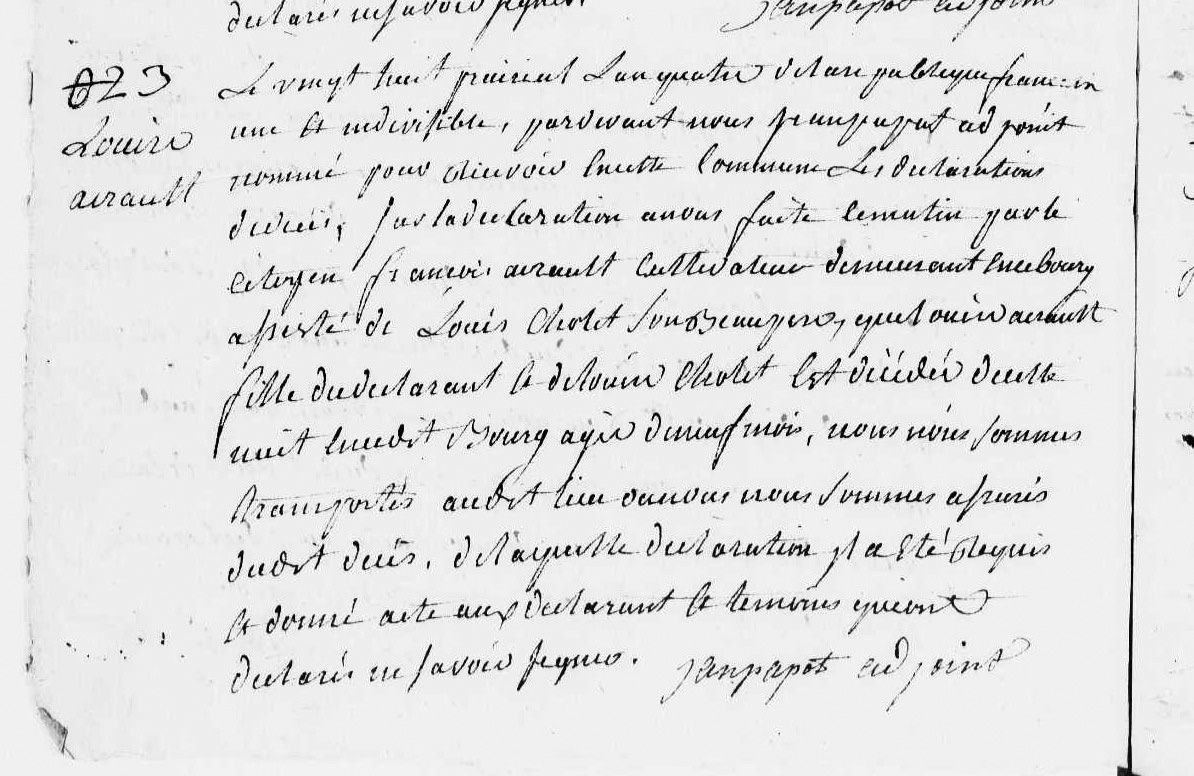 declarés ne savoir signer. janpapot adjoint
023
Louise
airault
Le vingt huit prairial L'an quatre de la republique francoise
une et indivisible, pardevant nous jeanpapot adjoint
nommé pour recevoir en cette Commune Les declarations
de deceis, sur la declaration anous faite cematin par le
Citoyen francois airault Cultivateur demeurant en ce bourg
assisté de Louis Cholet Son Beaupere, que Louise airault
fille du declarant et de Louise Cholet Est décédée de cette
nuit en cedit Bourg agée de neuf mois, nous nous sommes
transportés audit lieu ou nous nous sommes assurés
dudit decès. de laquelle declaration jl a Eté requis
et donné acte aux declarant et temoins qui ont
declarés ne savoir signer. janpapot adjoint